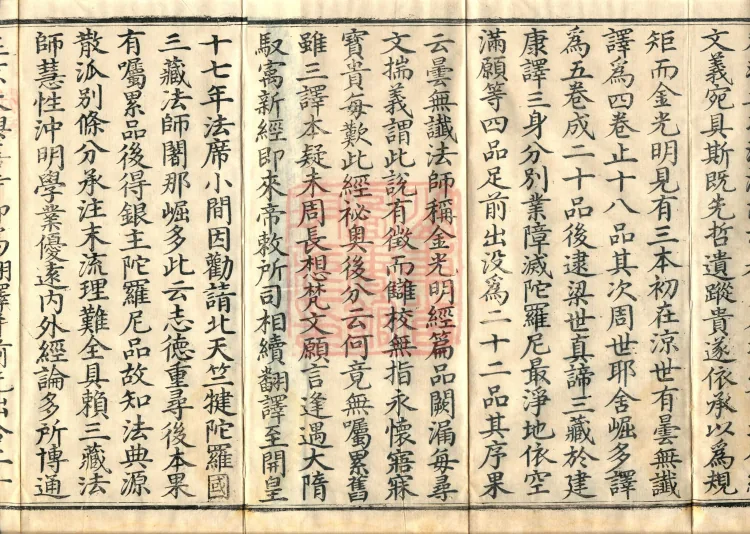 文義宛具斯既先哲遺蹤貴遂依承以為規
矩而金光明見有三本初在涼世有曇無讖
譯為四卷止十八品其次周世耶舍崛多譯
為五卷成二十品後逮梁世真諦三藏於建
康譯三身分別業障滅陀羅尼最淨地依空
滿願等四品足前出没為二十二品其序果
云曇無讖法師稱金光明經篇品闕漏每尋
文揣義謂此說有徵而讎校無指永懷寤寐
寶貴每歎此經祕奧後分云何竟無囑累舊
雖三譯本疑未周長想梵文願言逢遇大隋
馭㝢新經即來帝敕所司相續翻譯至開皇
十七年法席小間因勸請北天竺揵陀羅國
三藏法師闍那崛多此云志德重尋後本果
有囑累品後得銀主陀羅尼品故知法典源
散派別條分承注末流理難全具賴三藏法
師慧性沖明學業優遠內外經論多所博通